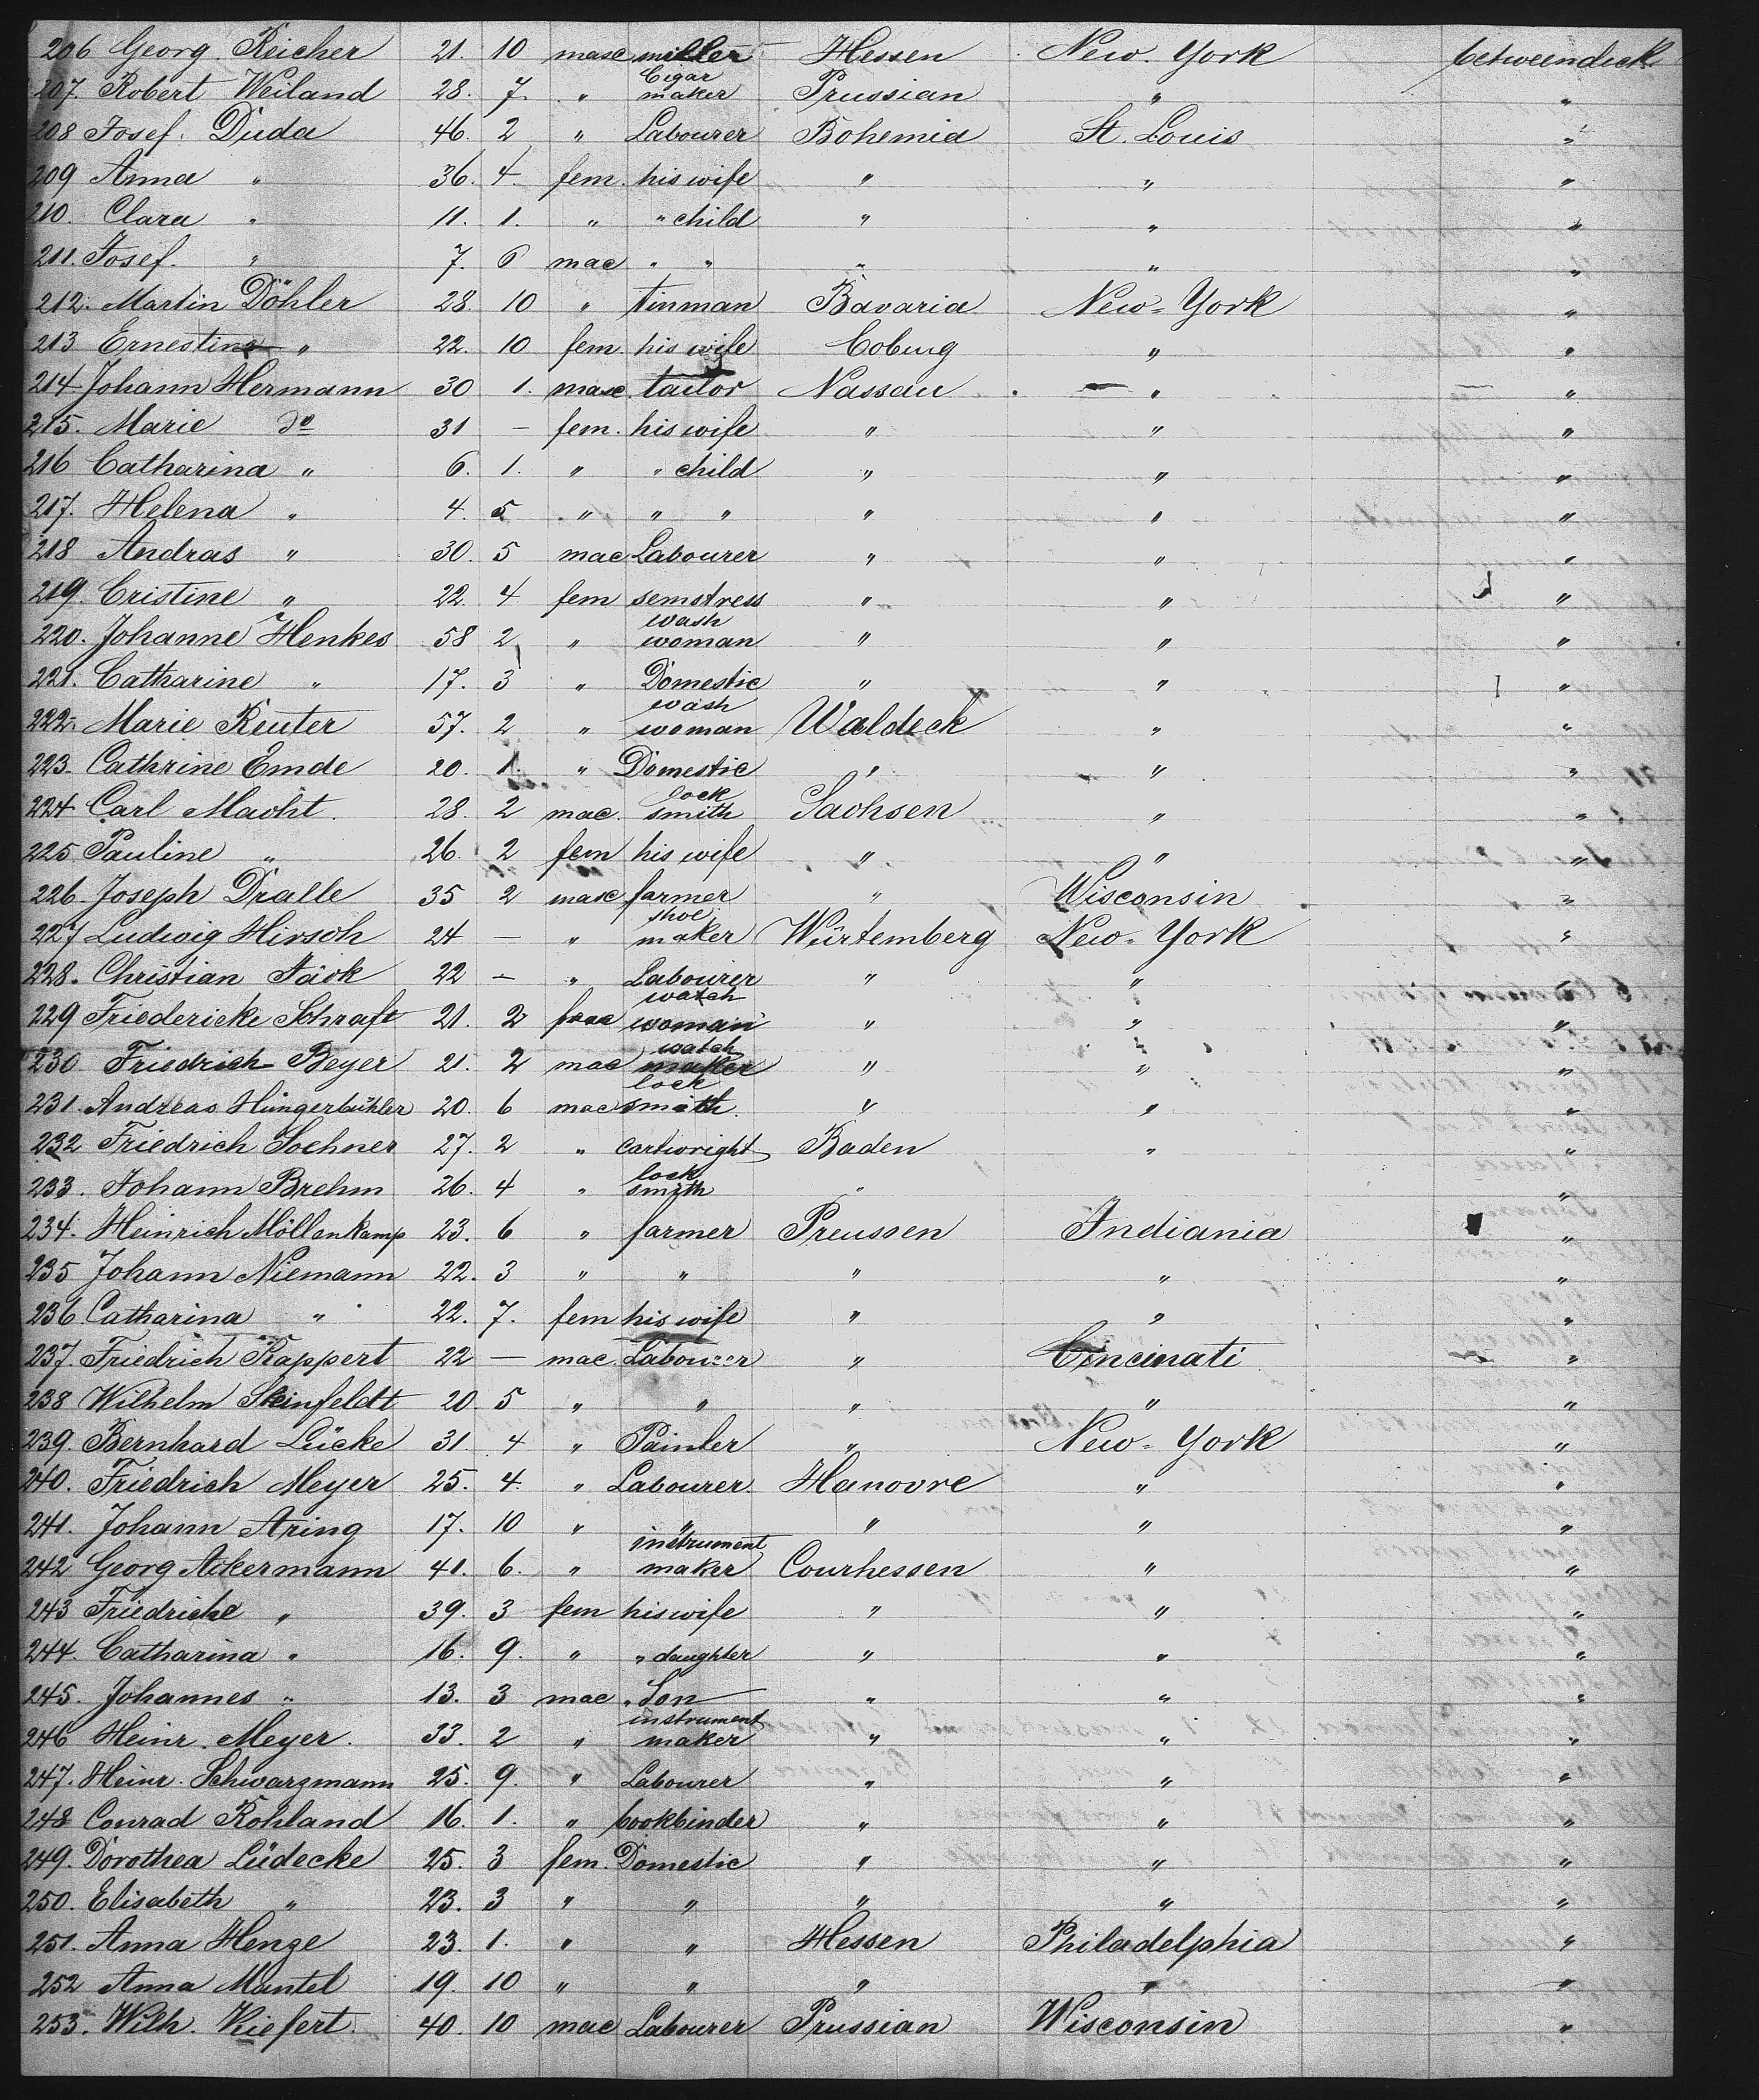 206 Georg. Reicher 21. 10 masc miller Hessen New-York betweendeck
207. Robert Weiland 28. 7. " Cigar maker Prussian " "
208 Josef. Duda 46. 2 " Labourer Bohemia St. Louis "
209 Anna " 36. 4. fem. his wife " " "
210. Clara " 11. 1. " " child " " "
211. Josef. " 7. 6 mac " " " " "
212. Martin Döhler 28. 10 " tinman Bavaria New-York "
213 Ernestine " 22. 10 fem. his wife Coburg " "
214 Johann Hermann 30 1. masc. tailor Nassau " "
215. Marie do 31 – fem. his wife " " "
216 Catharina " 6. 1. " " child " " "
217. Helena " 4. 5 " " " " " "
218 Andras " 30. 5 mac Labourer " " "
219. Cristine " 22. 4 fem semstress " " "
220. Johanne Henkes 58 2 " wash woman " " "
221. Catharine " 17. 3 " Domestic " " "
222. Marie Reuter 57. 2 " wash woman Waldeck " "
223. Cathrine Emde 20. 1. " Domestic " " "
224 Carl Macht. 28. 2 mac. lock smith Sachsen " "
225 Pauline " 26. 2 fem his wife " " "
226. Joseph Dralle 35 2 masc farmer " Wisconsin "
227 Ludwig Hirsch 24 – " shoe maker Würtemberg New-York "
228. Christian Jäck 22 – " Labourer " " "
229 Friedericke Schraft 21. 2 watch woman " " "
230 Friedrich Beyer 21. 2 mac watch maker " " "
231. Andreas Hungerbühler 20. 6 mac lock smith. " " "
232 Friedrich Sochner 27. 2 " cartwright Baden " "
233. Johann Brehm 26. 4 " lock smith " "
234. Heinrich Möllenkamp 23. 6 " farmer Preussen Indiania "
235 Johann Niemann 22. 3 " " " " "
236. Catharina " 22. 7. fem his wife " " "
237. Friedrich Rappert 22 – mac. Labourer " Cincinati "
238 Wilhelm Steinfeldt 20. 5 " " " " "
239. Bernhard Lücke 31. 4 " Painter " New-York "
240. Friedrich Meyer 25. 4. " Labourer Hanovre " "
241. Johann Aring 17. 10 " " " " "
242 Georg Ackermann 41. 6. " instrument maker Courhessen " "
243 Friedricke " 39. 3 fem his wife " " "
244. Catharina " 16. 9. " " daughter " " "
245. Johannes " 13. 3 mac " Son " " "
246 Heinr. Meyer. 33. 2 " instrument maker " " "
247. Heinr. Schwarzmann 25. 9. " Labourer " " "
248 Conrad Rohland 16. 1. " bookbinder " " "
249. Dorothea Lüdecke 25. 3 fem. Domestic " " "
250. Elisabeth " 23. 3 " " " " "
251. Anna Henze 23. 1. " " Hessen Philadelphia "
252 Anna Mantel 19. 10 " " " " "
253. Wilh. Kiefert. 40. 10 mac Labourer Prussian Wisconsin "